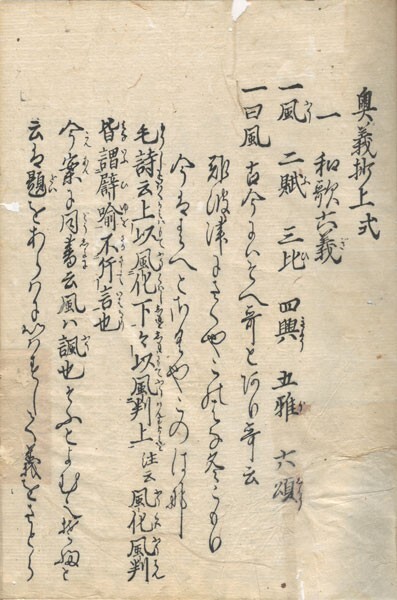 奥義抄上式
一 和歌六義
一風 二賦 三比 四興 五雅 六頌
一曰風 古今にハそへ哥とあり哥云
那波津にさくやこの花冬こもり
今ははるへとさくやこのは那
毛詩云上以風化下々以風判上 注云風化風判
皆謂譬喩不斥言也
今案に同書云風ハ諷也そふとよむへ
云は題をあらはに すして義をさとら